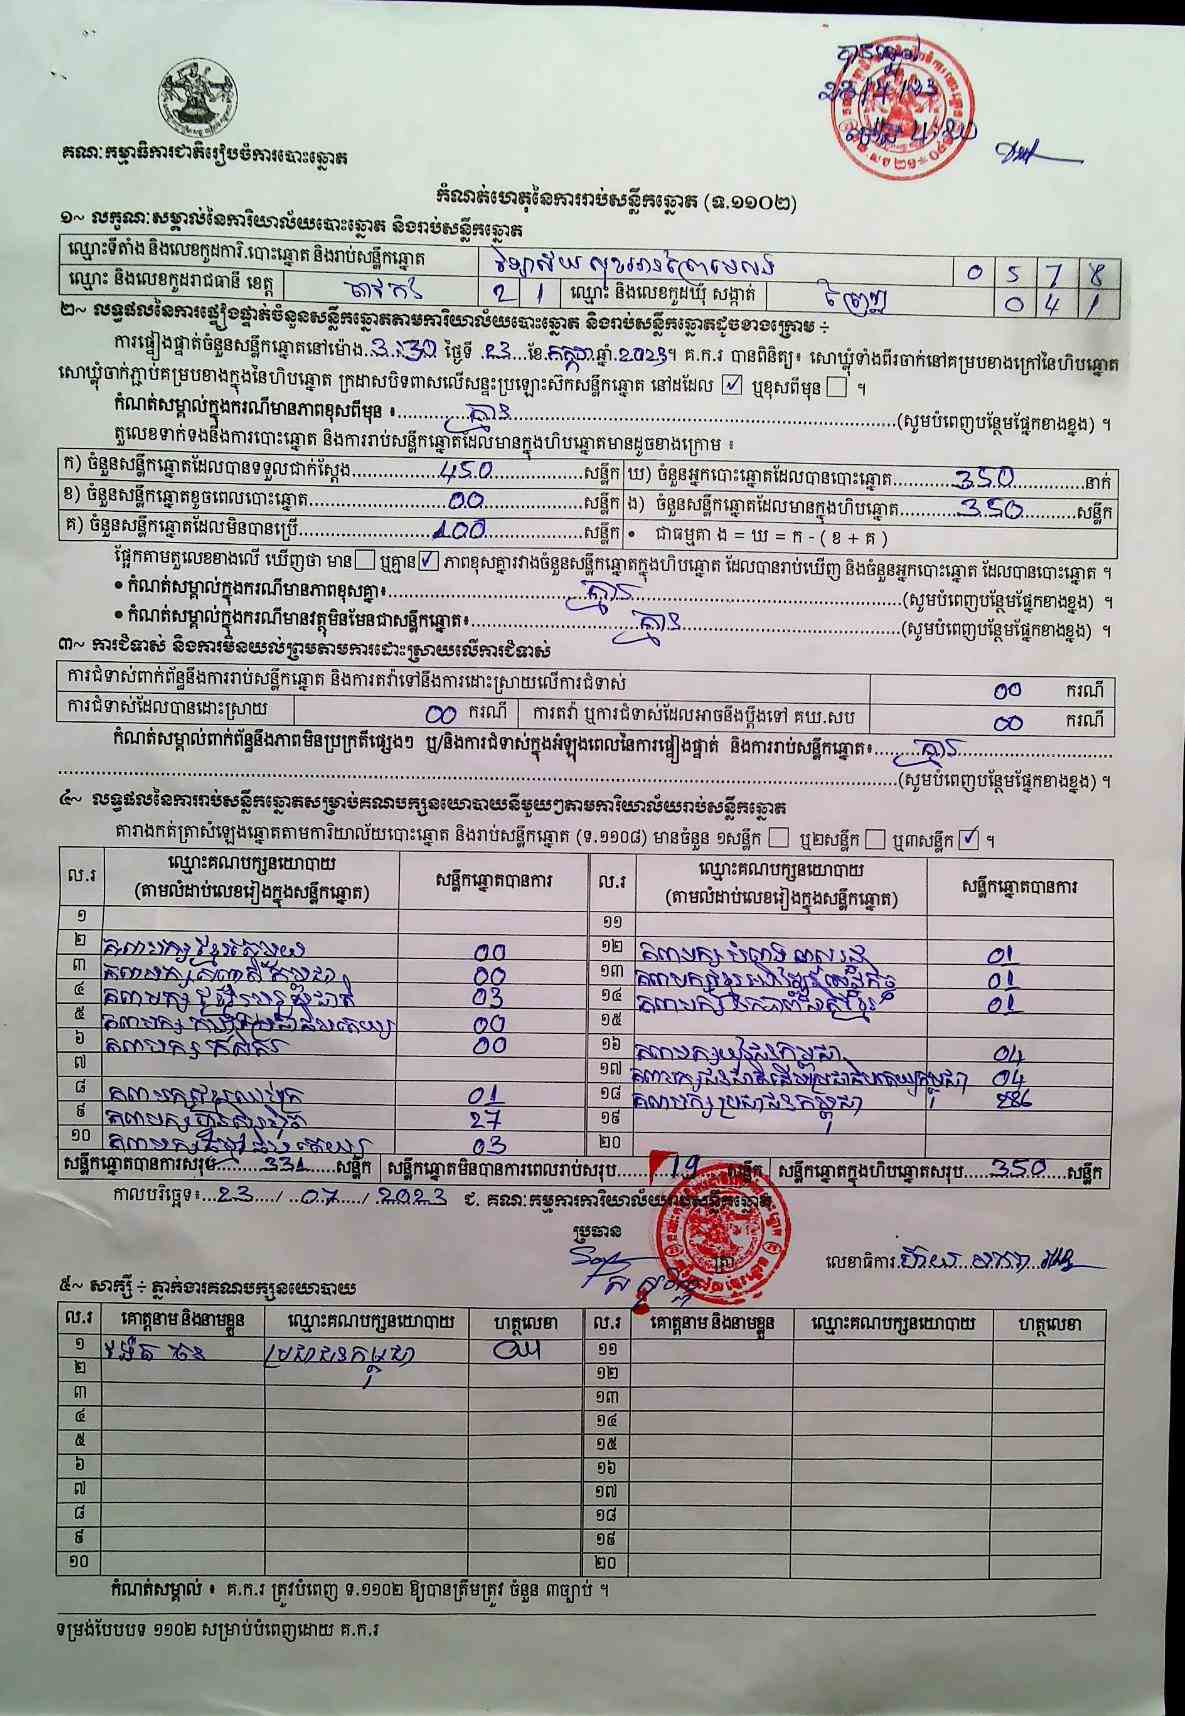 គណៈកម្មាធិការជាតិរៀបចំការបោះឆ្នោត
កំណត់ហេតុនៃការរាប់សន្លឹកឆ្នោត (ទ.១១០២)
១~ លក្ខណៈសម្គាល់នៃការិយាល័យបោះឆ្នោត និងរាប់សន្លឹកឆ្នោត
ឈ្មោះទីតាំង និងលេខកូដការិ.បោះឆ្នោត និងរាប់សន្លឹកឆ្នោត 0 5 7 8
ឈ្មោះ និងលេខកូដរាជធានី ខេត្ត តាកែវ 2 1 ឈ្មោះ និងលេខកូដឃុំ សង្កាត់ 0 4 1
២~ លទ្ធផលនៃការផ្ទៀងផ្ទាត់ចំនួនសន្លឹកឆ្នោតតាមការិយាល័យបោះឆ្នោត និងរាប់សន្លឹកឆ្នោតដូចខាងក្រោម ÷
ការផ្ទៀងផ្ទាត់ចំនួនសន្លឹកឆ្នោតនៅម៉ោង 3:30 ថ្ងៃទី 23 ខែ កក្កដា ឆ្នាំ 2023។ គ.ក.រ បានពិនិត្យ៖ សោឃ្លុំទាំងពីរចាក់នៅគម្របខាងក្រៅនៃហិបឆ្នោត
សោឃ្លុំចាក់ភ្ជាប់គម្របខាងក្នុងនៃហិបឆ្នោត ក្រដាសបិទពាសលើសន្ទះប្រឡោះសឹកសន្លឹកឆ្នោត នៅដដែល ☑ ឬខុសពីមុន ☐ ។
កំណត់សម្គាល់ក្នុងករណីមានភាពខុសពីមុន ៖ គ្មាន (សូមបំពេញបន្ថែមផ្នែកខាងខ្នង) ។
តួលេខទាក់ទងនឹងការបោះឆ្នោត និងការរាប់សន្លឹកឆ្នោតដែលមានក្នុងហិបឆ្នោតមានដូចខាងក្រោម ៖
ក) ចំនួនសន្លឹកឆ្នោតដែលបានទទួលជាក់ស្តែង 450 សន្លឹក ឃ) ចំនួនអ្នកបោះឆ្នោតដែលបានបោះឆ្នោត 350 នាក់
ខ) ចំនួនសន្លឹកឆ្នោតខូចពេលបោះឆ្នោត 00 សន្លឹក ង) ចំនួនសន្លឹកឆ្នោតដែលមានក្នុងហិបឆ្នោត 350 សន្លឹក
គ) ចំនួនសន្លឹកឆ្នោតដែលមិនបានប្រើ 100 សន្លឹក • ជាធម្មតា ង = ឃ = ក - ( ខ + គ )
ផ្អែកតាមតួលេខខាងលើ ឃើញថា មាន ☐ ឬគ្មាន ☑ ភាពខុសគ្នារវាងចំនួនសន្លឹកឆ្នោតក្នុងហិបឆ្នោត ដែលបានរាប់ឃើញ និងចំនួនអ្នកបោះឆ្នោត ដែលបានបោះឆ្នោត ។
• កំណត់សម្គាល់ក្នុងករណីមានភាពខុសគ្នា៖ គ្មាន (សូមបំពេញបន្ថែមផ្នែកខាងខ្នង) ។
• កំណត់សម្គាល់ក្នុងករណីមានវត្ថុមិនមែនជាសន្លឹកឆ្នោត៖ គ្មាន (សូមបំពេញបន្ថែមផ្នែកខាងខ្នង) ។
៣~ ការជំទាស់ និងការមិនយល់ព្រមតាមការដោះស្រាយលើការជំទាស់
ការជំទាស់ពាក់ព័ន្ធនឹងការរាប់សន្លឹកឆ្នោត និងការតវ៉ាទៅនឹងការដោះស្រាយលើការជំទាស់ 00 ករណី
ការជំទាស់ដែលបានដោះស្រាយ 00 ករណី ការតវ៉ា ឬការជំទាស់ដែលអាចនឹងប្តឹងទៅ គឃ.សប 00 ករណី
កំណត់សម្គាល់ពាក់ព័ន្ធនឹងភាពមិនប្រក្រតីផ្សេងៗ ឬ/និងការជំទាស់ក្នុងអំឡុងពេលនៃការផ្ទៀងផ្ទាត់ និងការរាប់សន្លឹកឆ្នោត៖ គ្មាន
(សូមបំពេញបន្ថែមផ្នែកខាងខ្នង) ។
៤~ លទ្ធផលនៃការរាប់សន្លឹកឆ្នោតសម្រាប់គណបក្សនយោបាយនីមួយៗតាមការិយាល័យរាប់សន្លឹកឆ្នោត
តារាងកត់ត្រាសំឡេងឆ្នោតតាមការិយាល័យបោះឆ្នោត និងរាប់សន្លឹកឆ្នោត (ទ.១១០៨) មានចំនួន ១សន្លឹក ☐ ឬ២សន្លឹក ☐ ឬ៣សន្លឹក ☑ ។
ល.រ ឈ្មោះគណបក្សនយោបាយ (តាមលំដាប់លេខរៀងក្នុងសន្លឹកឆ្នោត) សន្លឹកឆ្នោតបានការ ល.រ ឈ្មោះគណបក្សនយោបាយ (តាមលំដាប់លេខរៀងក្នុងសន្លឹកឆ្នោត) សន្លឹកឆ្នោតបានការ
១ ១១
២ គណបក្ស 00 ១២ គណបក្ស 01
៣ គណបក្ស 00 ១៣ គណបក្ស 01
៤ គណបក្ស 03 ១៤ គណបក្ស 01
៥ គណបក្ស 00 ១៥
៦ គណបក្ស កសិករ 00 ១៦ គណបក្ស 04
៧ ១៧ គណបក្ស 04
៨ គណបក្ស 01 ១៨ គណបក្ស ប្រជាជនកម្ពុជា 286
៩ គណបក្ស ហ៊្វុនស៊ិនប៉ិច 27 ១៩
១០ គណបក្ស 03 ២០
សន្លឹកឆ្នោតបានការសរុប 331 សន្លឹក សន្លឹកឆ្នោតមិនបានការពេលរាប់សរុប 19 សន្លឹក សន្លឹកឆ្នោតក្នុងហិបឆ្នោតសរុប 350 សន្លឹក
កាលបរិច្ឆេទ៖ 23 / 07 / 2023 ជ. គណៈកម្មការការិយាល័យរាប់សន្លឹកឆ្នោត
ប្រធាន
លេខាធិការ
៥~ សាក្សី ÷ ភ្នាក់ងារគណបក្សនយោបាយ
ល.រ គោត្តនាម និងនាមខ្លួន ឈ្មោះគណបក្សនយោបាយ ហត្ថលេខា ល.រ គោត្តនាម និងនាមខ្លួន ឈ្មោះគណបក្សនយោបាយ ហត្ថលេខា
១ ប្រជាជនកម្ពុជា ១១
២ ១២
៣ ១៣
៤ ១៤
៥ ១៥
៦ ១៦
៧ ១៧
៨ ១៨
៩ ១៩
១០ ២០
កំណត់សម្គាល់ ៖ គ.ក.រ ត្រូវបំពេញ ទ.១១០២ ឱ្យបានត្រឹមត្រូវ ចំនួន ៣ច្បាប់ ។
ទម្រង់បែបបទ ១១០២ សម្រាប់បំពេញដោយ គ.ក.រ